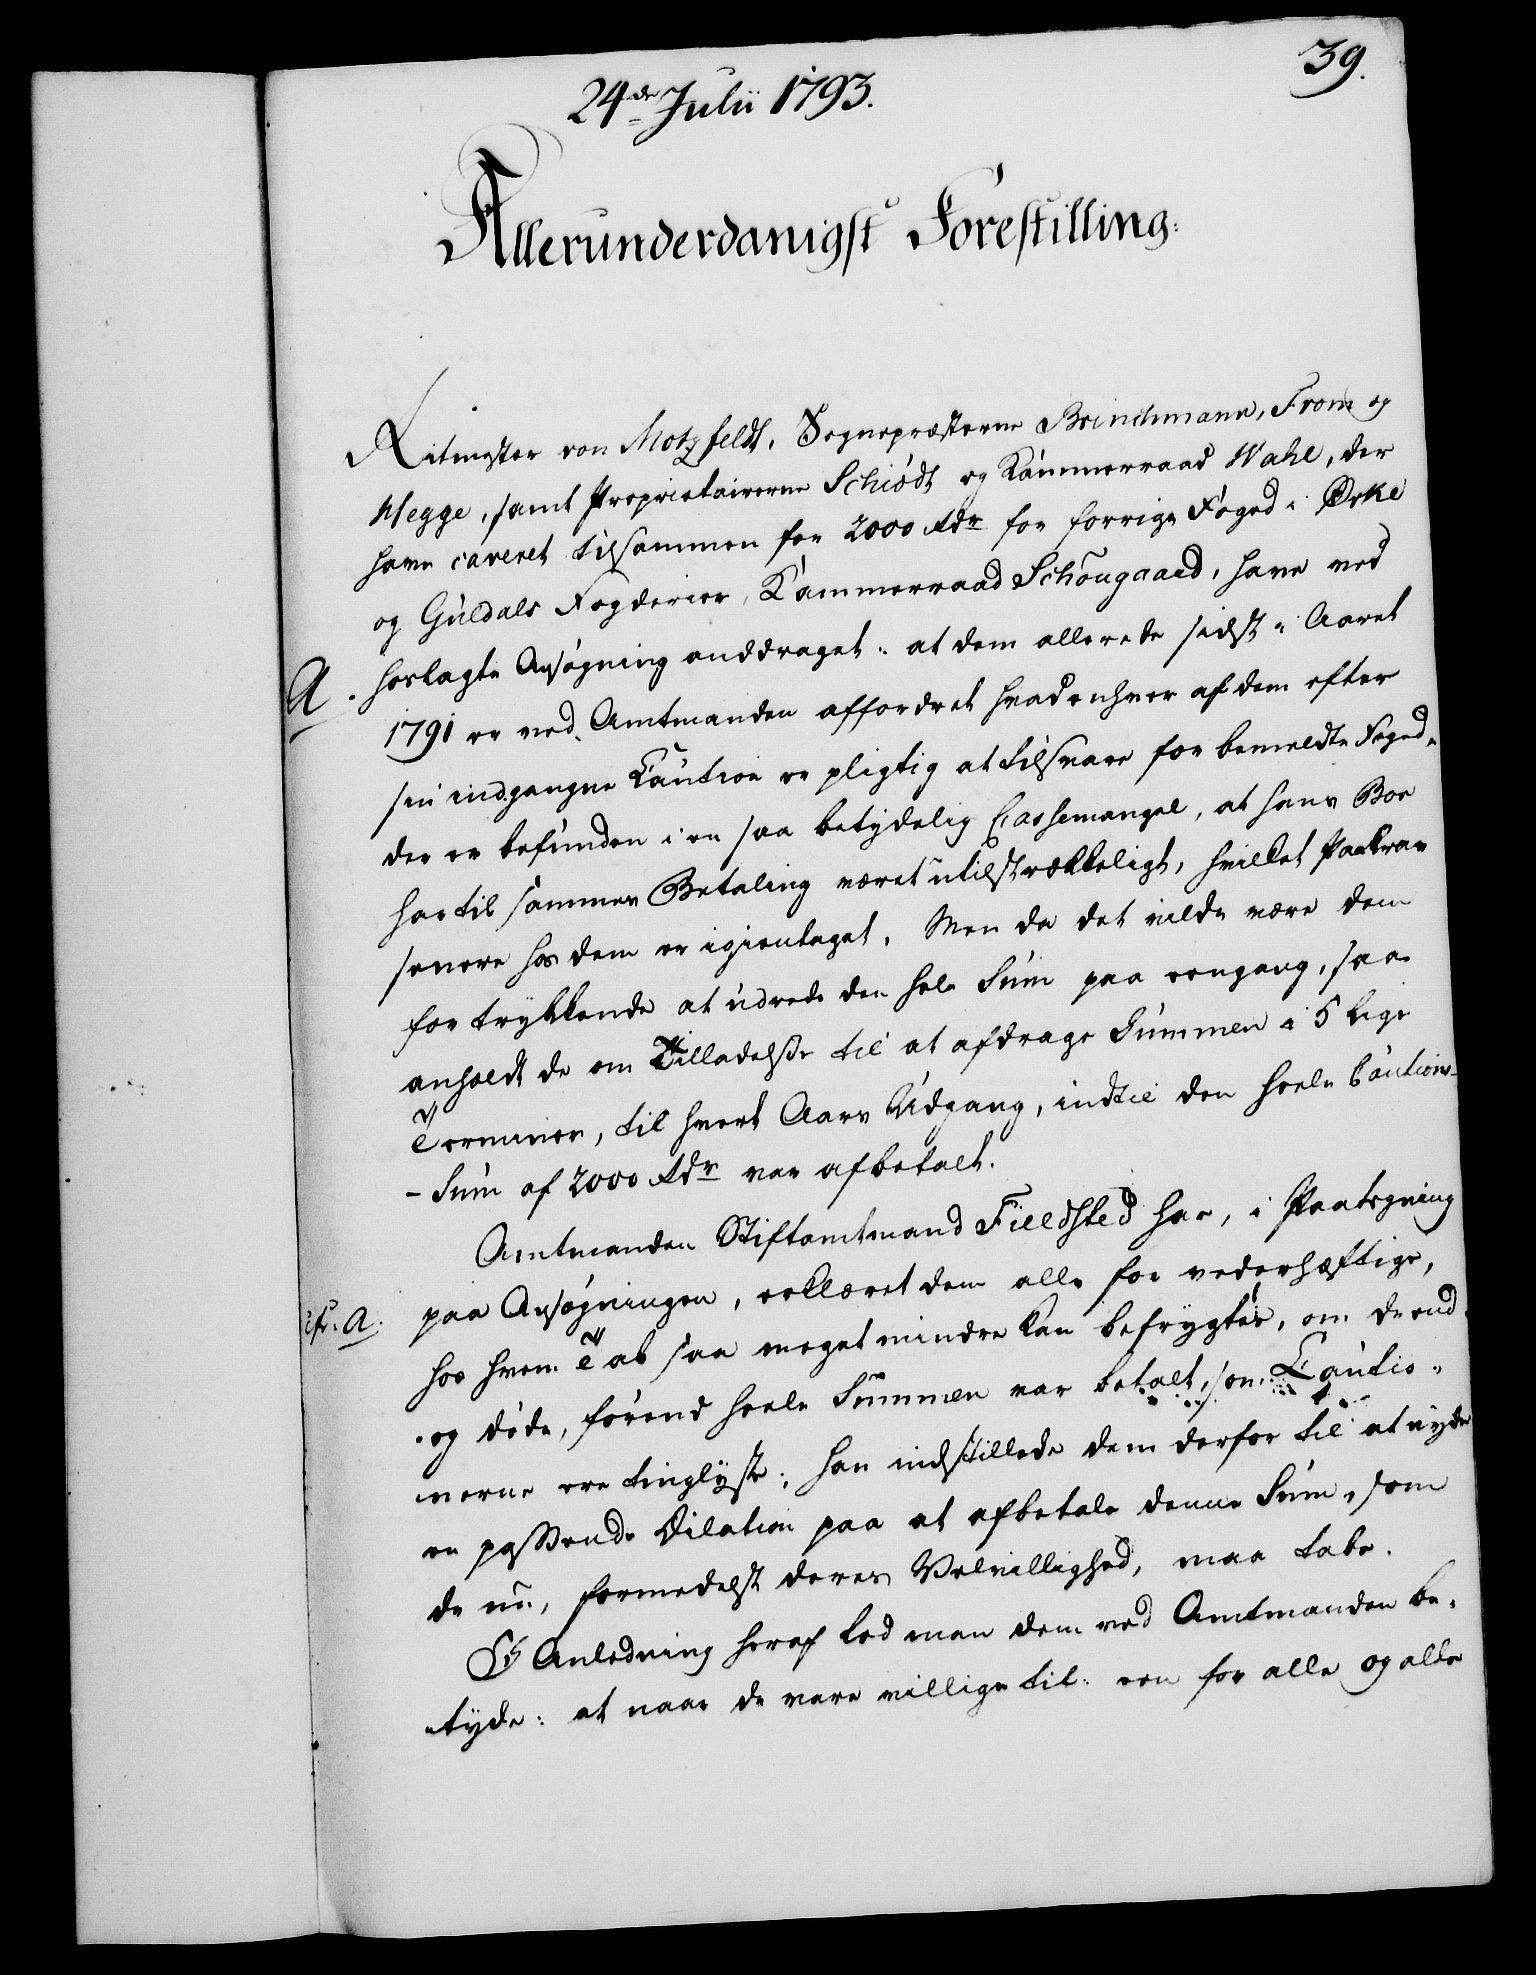 39.
24de Julii 1793.
Allerunderdanigst Forestilling:
Ritmester von Motzfeldt, Sognepræsterne Brinchmann, From og
Hegge, samt Proprietairerne Schiødt og Kammerraad Wahl, der
have caveret tilsammen for 2000 Rdr for forrige Foged i Orke
og Guldals Fogderier, Kammerraad Schougaard, have ved
A. hoslagte Ansøgning anddraget: at dem allerede sidst i Aaret
1791 er ved Amtmanden affordret hvad enhver af dem efter
sin indgangne Caution er pligtig at tilsvare for bemeldte Foged,
der er befunden i en saa betydelig Cassemangel, at hans Boe
har til sammes Betaling været utilstrækkeligt, hvilket Paakrav
senere hos dem er igientaget. Men da det vilde være dem
for trykkende at udrede den hele Sum paa eengang, saa
anholdt de om Tilladelse til at afdrage Summen i 5 lige
Terminer, til hvert Aars Udgang, indtil den heele Cautions-
-Sum af 2000 Rdr var afbetalt.
Amtmanden Stiftamtmand Fieldsted har, i Paategning
cfr. A. paa Ansøgningen, erklæret dem alle for vederhæftige,
hos hvem Tab saa meget mindre kan befrygtes, om de end-
og døde, førend heele Summen var betalt, som Cautio-
nerne ere tinglyste; han indstillede dem derfor til at nyde
en passende Dilation paa at afbetale denne Sum, som
de nu, formedelst deres Velvillighed, maa tabe.
I Anledning heraf lod man dem ved Amtmanden be-
tyde: at naar de vare villige til: een for alle og alle